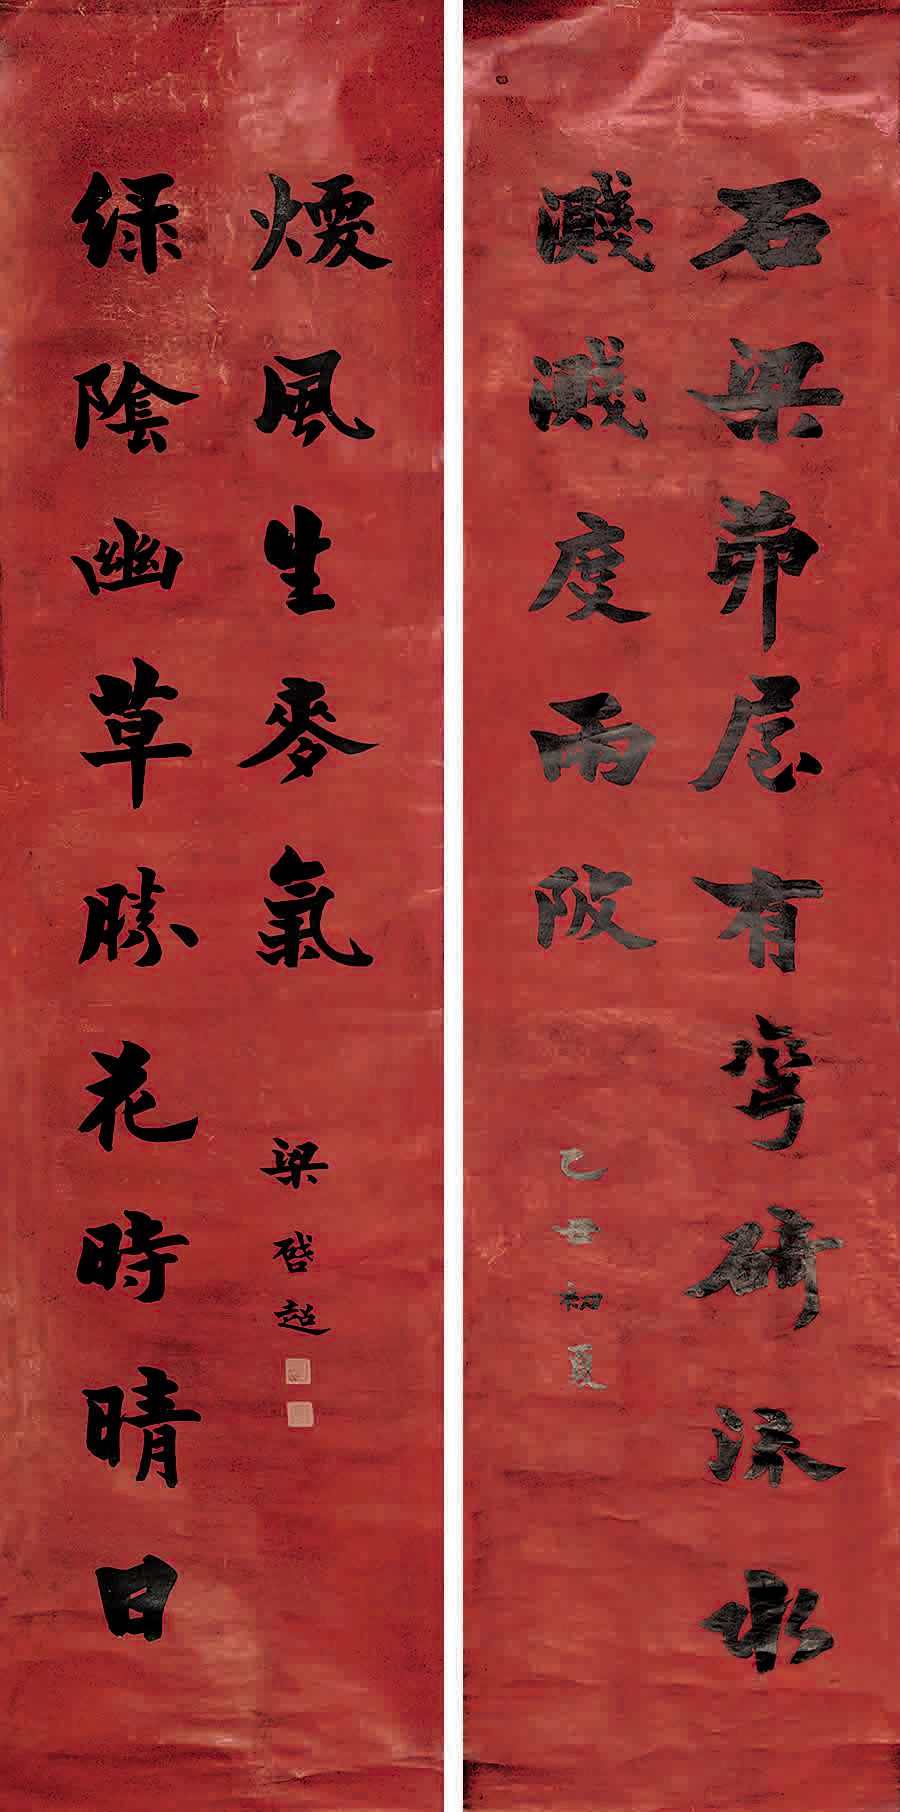 石梁茆屋有彎碕流水
濺濺度兩陂
乙丑初夏
綠陰幽草勝花時晴日
煖風生麥氣
梁啓超